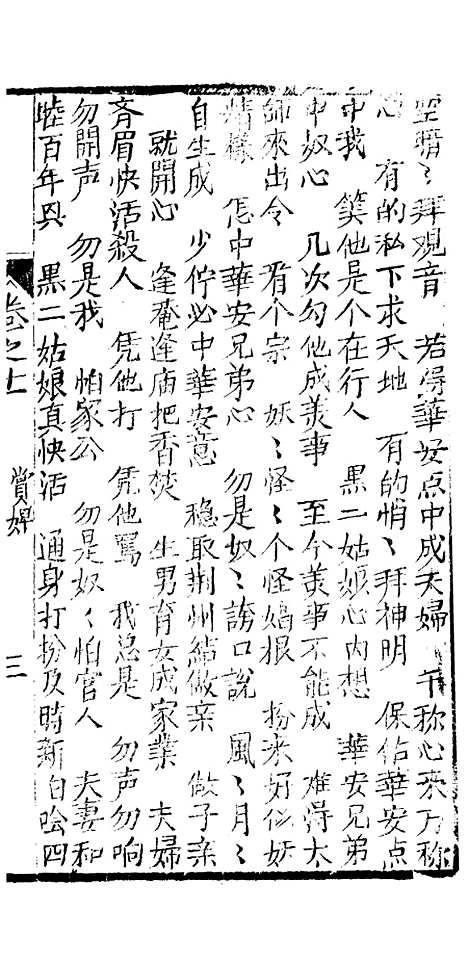 空暗〻拜觀音　若得華安点中成夫婦　千称心來万称
心　有的私下求天地　有的悄〻拜神明　保佑華安点
中我　笑他是个在行人　黑二姑娘心内想　華安兄弟
中奴心　几次勾他成美事　至今美事不能成　难得太
師來出令　看个宗　妖〻怪〻个怪娼根　扮来好似妖
精樣　怎中華安兄弟心　勿是奴〻誇口說　風〻月〻
自生成　少佇必中華安意　稳取荆州結做亲　做子亲
就開心　逢菴逢庙把香焚　生男育女成家業　夫婦
齐眉快活殺人　凭他打　凭他罵　我总是　勿声勿响
勿開声　勿是我　怕家公　勿是奴〻怕官人　夫妻和
睦百年具　黑二姑娘真快活　通身打扮及時新　白唅四
卷之十　賞婢　三